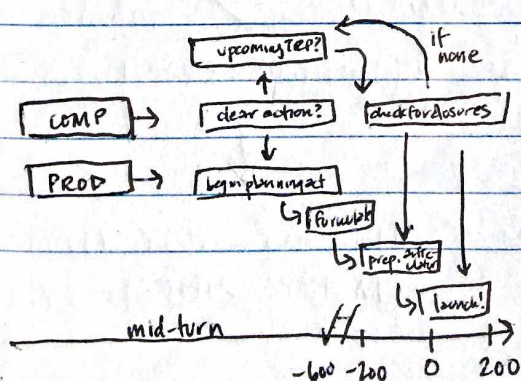 upcoming TRP?
if
none
COMP
clear action?
check for closures
PROD
begin planning act
formulate
prep.
launch!
mid-turn
-600 -200 0 200